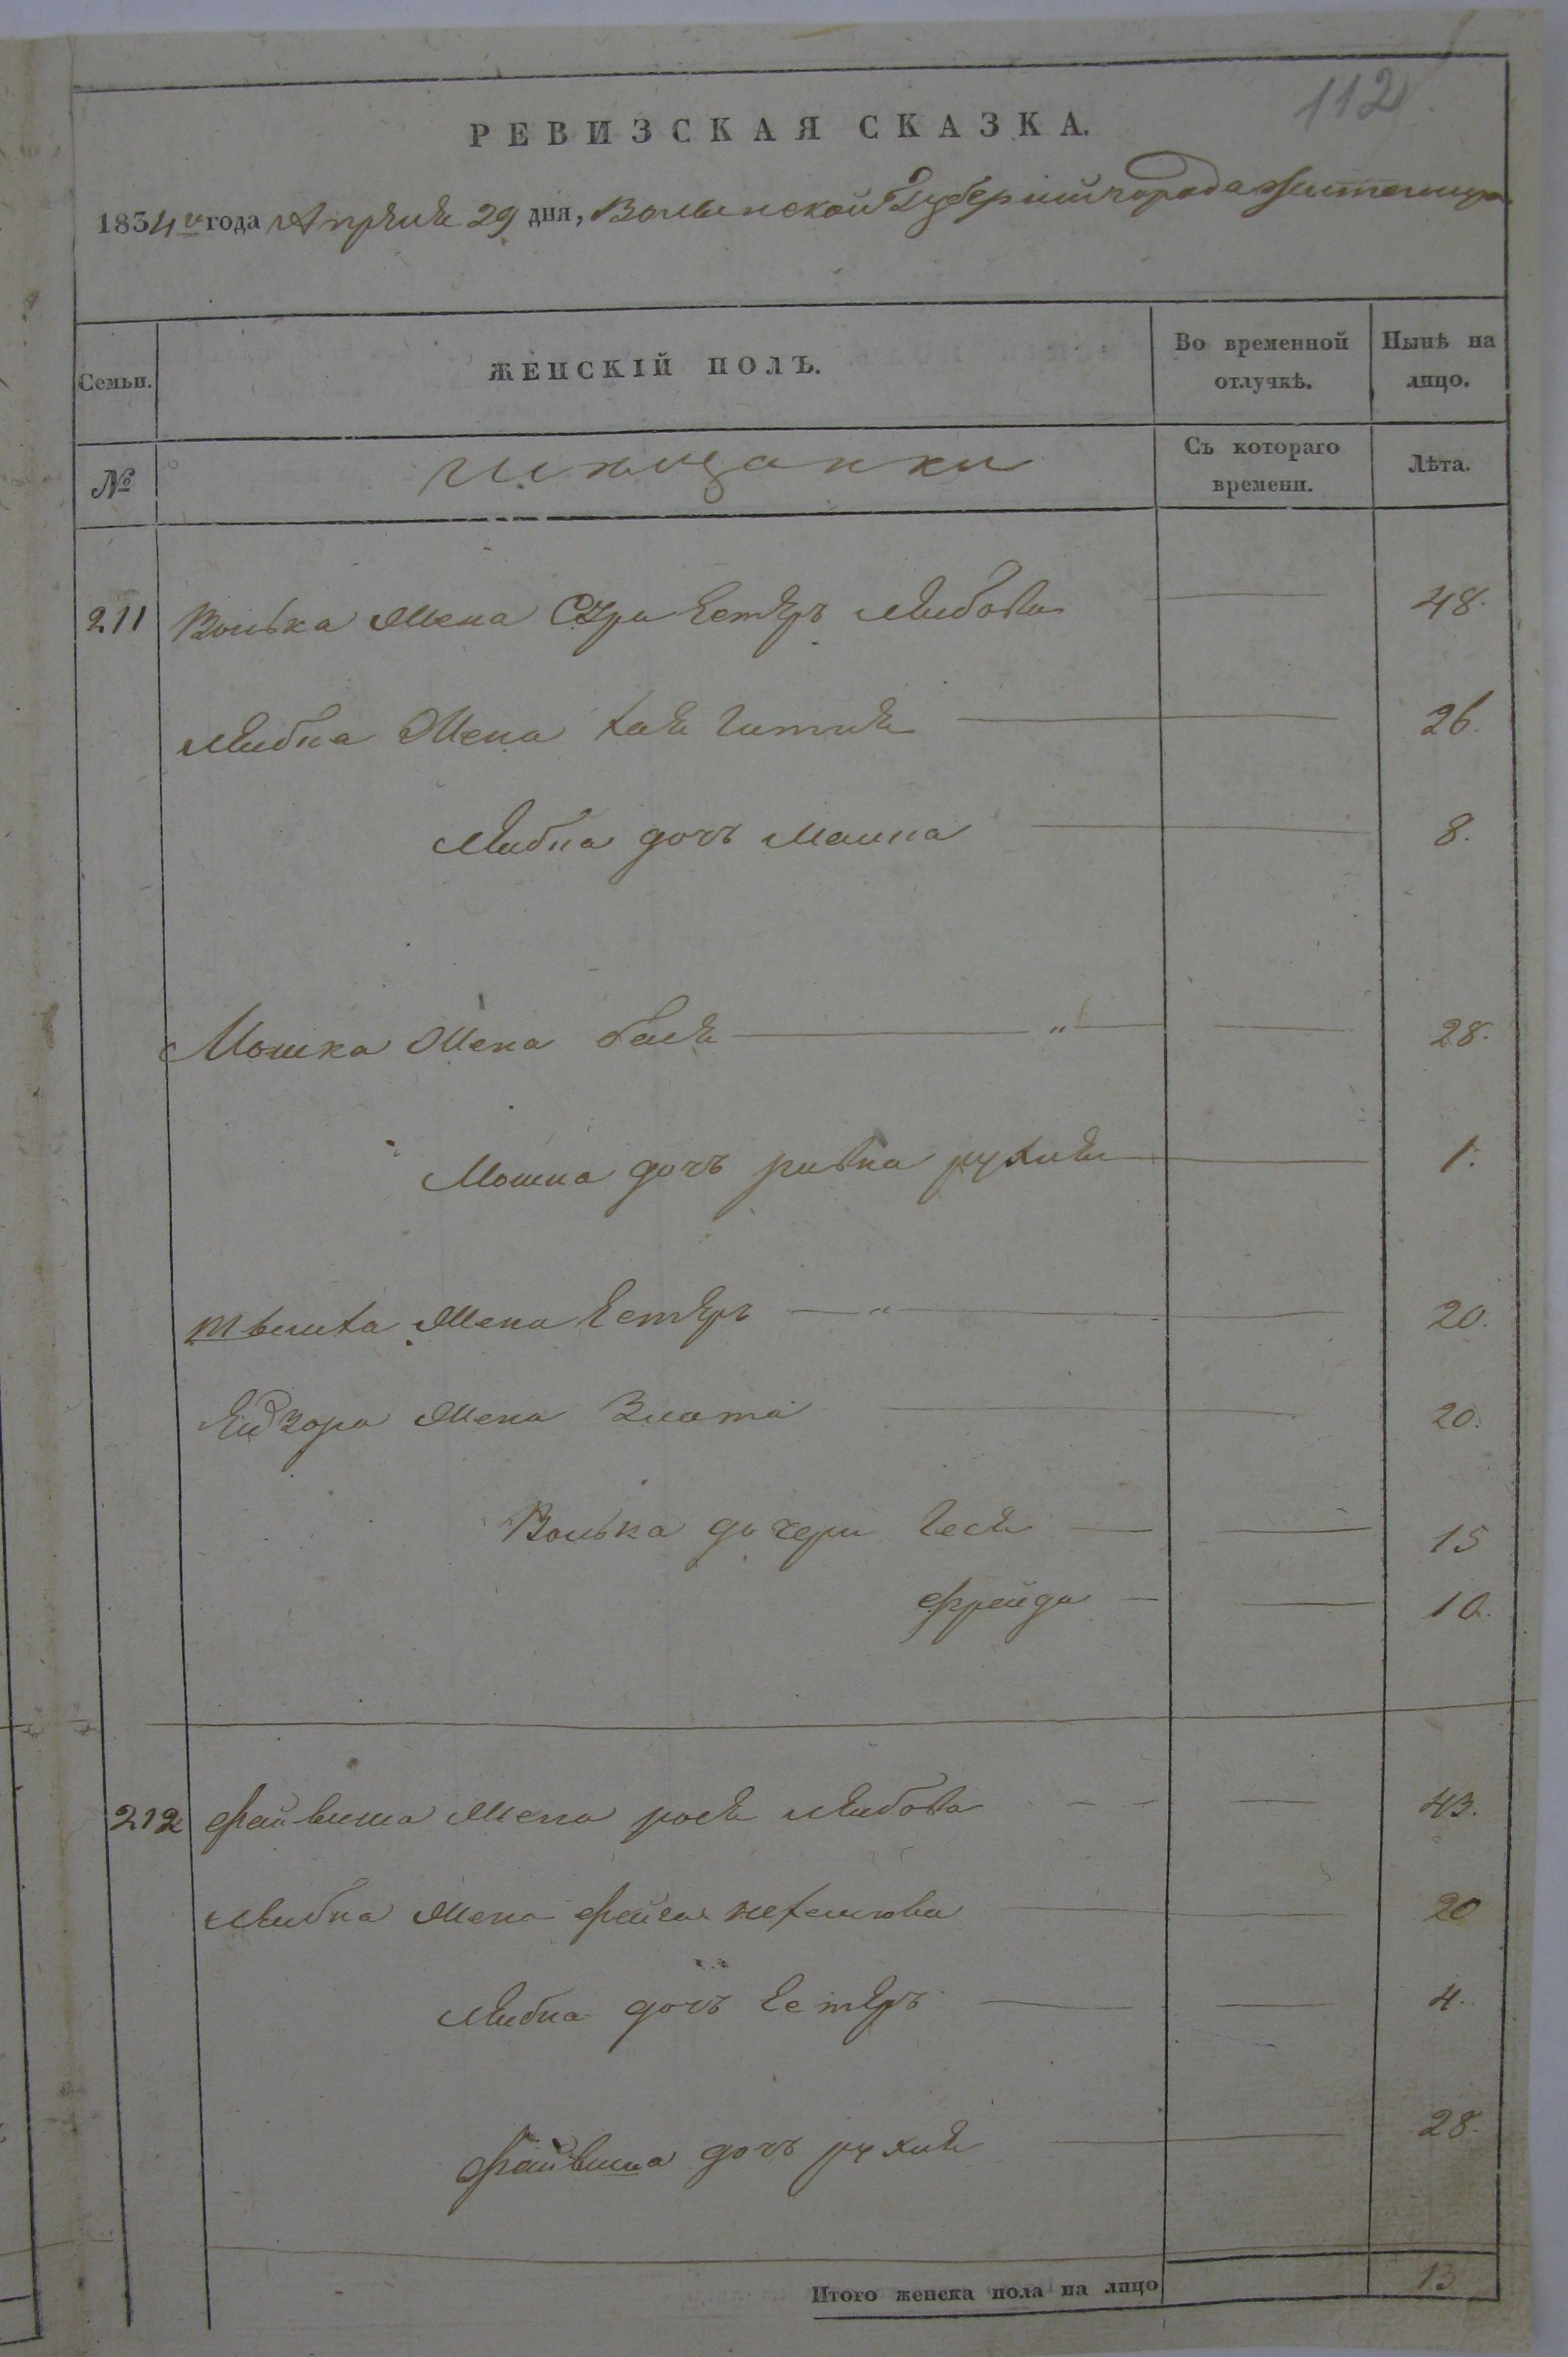 112
РЕВИЗСКАЯ СКАЗКА.
1834го года Апреля 29 дня, Волынской Губернии города Житомира
Семьи.
ЖЕНСКІЙ ПОЛЪ.
Во временной отлучкѣ.
Нынѣ на лицо.
№
мещанки
Съ котораго времени.
Лѣта.
211 Волька жена Сура Естеръ Лейбова 48.
Лейбы жена Хая Гитля 26.
Лейбы дочь Малка 8.
Мошка жена Бася 28.
Мошка дочь Ривка Рухля 1.
жена Естеръ 20.
жена Злата 20.
Волька дочери Геся 15
Фрейда 10.
212 Файвиша жена Рося Лейбова 43.
Лейбы жена Фейга 20
Лейбы дочь Естеръ 4.
Файвиша дочь Рухля 28.
Итого женска пола на лицо 13